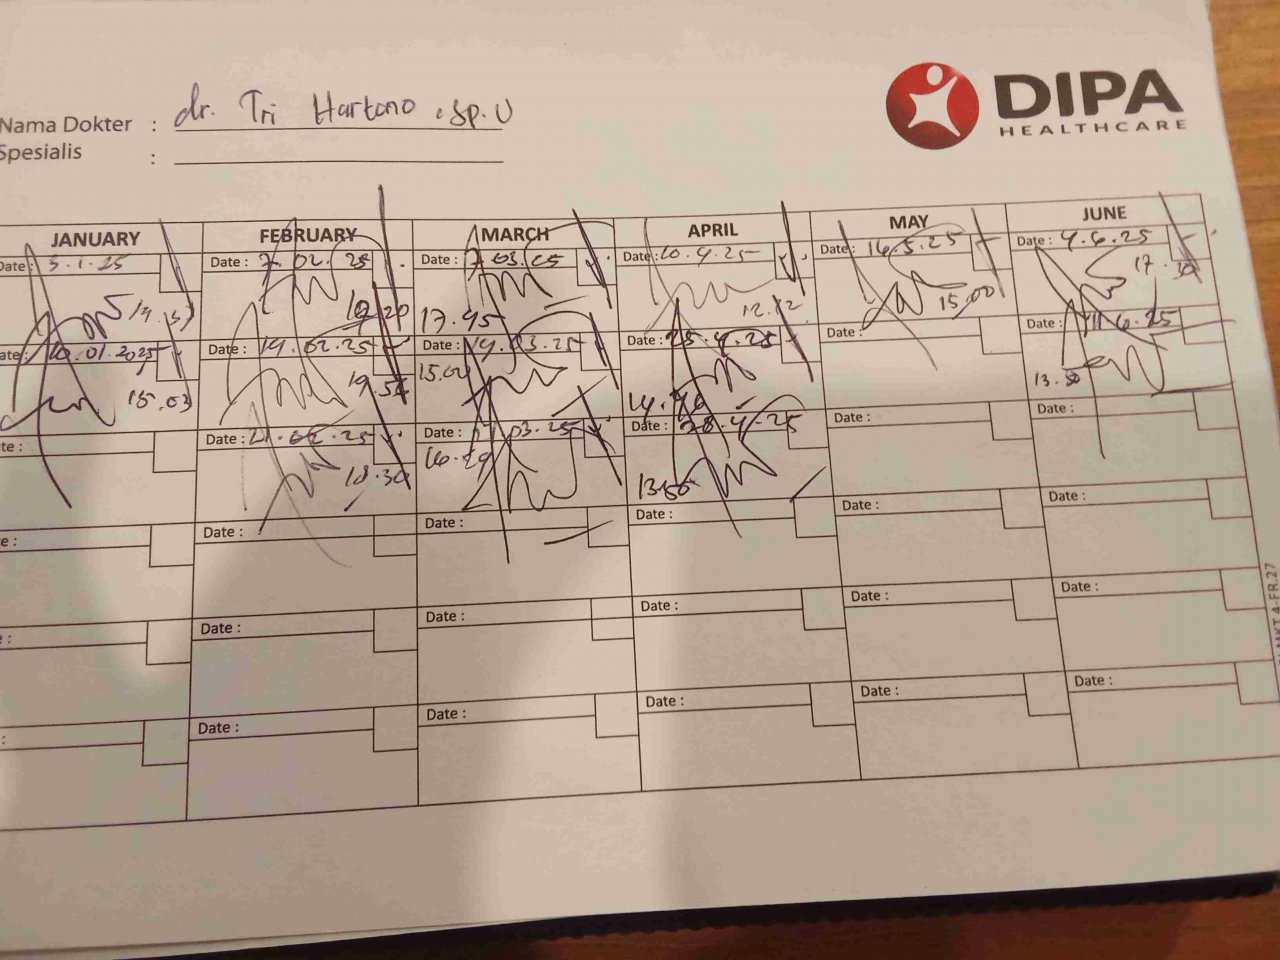 DIPA
HEALTHCARE
Nama Dokter : dr. Tri Hartono .Sp.U
Spesialis :
JANUARY FEBRUARY MARCH APRIL MAY JUNE
Date: 3.1.25 Date : 7.02.25 Date : 7.03.25 Date : 10.4.25 Date : 16.5.25 Date : 4.6.25
19.20 17.45 12.12 15.00 17.30
10.01.2025 Date : 14.02.25 Date : 14.03.25 Date : 25.4.25 Date : Date : 11.6.25
15.03 15.00 13.50
Date : 21.02.25 Date : 03.25 Date : 28.4.25 Date : Date :
18.30
Date : Date : Date : Date : Date :
Date : Date : Date : Date : Date :
Date : Date : Date : Date : Date :